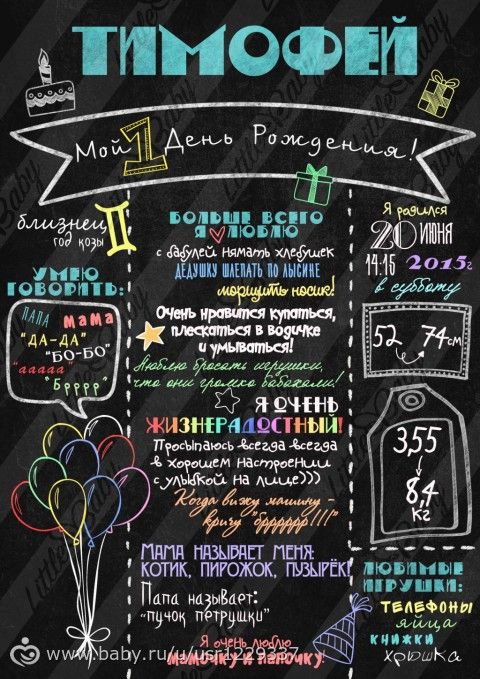 ТИМОФЕЙ
Мой 1 День Рождения!
близнец
год козы
УМЕЮ
ГОВОРИТЬ:
ПАПА мама
"ДА-ДА"
"БО-БО"
"ааааа"
"Бррррр"
БОЛЬШЕ ВСЕГО
Я ЛЮБЛЮ
с бабулей нямать хлебушек
ДЕДУШКУ ШЛЕПАТЬ ПО ЛЫСИНЕ
морщить носик!
Очень нравится купаться,
плескаться в водичке
и умываться!
Люблю бросать игрушки,
что они громко бабахали!
Я ОЧЕНЬ
ЖИЗНЕРАДОСТНЫЙ!
Просыпаюсь всегда всегда
в хорошем настроении
с улыбкой на лице)))
Когда вижу машину -
кричу "бррррр!!!"
МАМА НАЗЫВАЕТ МЕНЯ:
КОТИК, ПИРОЖОК, ПУЗЫРЁК!
Папа называет:
"пучок петрушки"
Я очень люблю
мамочку и папочку!
Я родился
20 ИЮНЯ
14:15 2015г
в субботу
52 74см
3,55
8,4
кг
ЛЮБИМЫЕ
ИГРУШКИ:
ТЕЛЕФОНЫ
яйца
КНИЖКИ
хрюшка